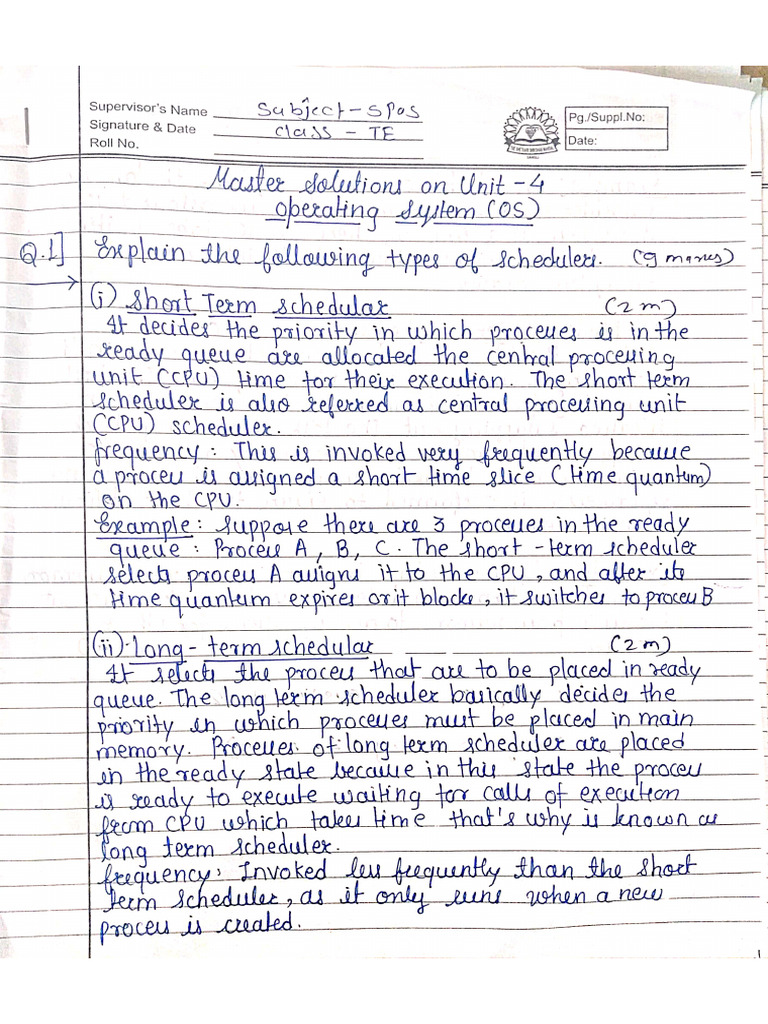 Supervisor's Name Subject-SPOS
Signature & Date Class - TE
Roll No.
Pg./Suppl.No:
Date:
1
Master Solutions on Unit - 4
Operating System (OS)
Q.1] Explain the following types of scheduler. (9 marks)
(i) Short Term schedular (2m)
It decides the priority in which processes is in the
ready queue are allocated the central processing
unit (CPU) time for their execution. The short term
scheduler is also referred as central processing unit
(CPU) scheduler.
frequency : This is invoked very frequently because
a process is assigned a short time slice (time quantum)
on the CPU.
Example : Suppose there are 3 processes in the ready
queue : Process A, B, C. The short-term scheduler
selects process A assigns it to the CPU, and after its
time quantum expires or it blocks, it switches to process B
(ii) Long-term schedular (2m)
It selects the process that are to be placed in ready
queue. The long term scheduler basically decides the
priority in which processes must be placed in main
memory. Processes of long term scheduler are placed
in the ready state because in this state the process
is ready to execute waiting for calls of execution
from CPU which takes time that's why is known as
long term scheduler.
frequency: Invoked less frequently than the short
term scheduler, as it only runs when a new
process is created.